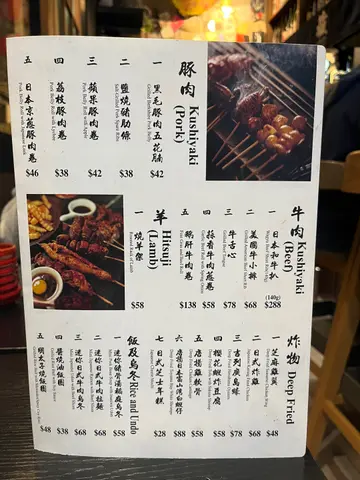 豚肉 Kushiyaki
(Pork)
一 黑毛豚肉五花腩
Grilled Berkshire Pork Belly
$42
二 鹽燒豬肋條
Salt-Grilled Pork Spare Ribs
$38
三 蘋果豚肉卷
Pork Belly Roll with Apple
$42
四 荔枝豚肉卷
Pork Belly Roll with Lychee
$38
五 日本京葱豚肉卷
Pork Belly Roll with Japanese Leek
$46
牛肉 Kushiyaki
(Beef)
一 日本和牛扒
(140g)
$288
二 美國牛小排
$68
三 牛舌心
$78
四 蒜香牛肉葱卷
$58
五 鵝肝牛肉卷
$138
羊 Hitsuji
(Lamb)
一 燒羊架
$58
炸物 Deep Fried
一 芝麻雞翼
$48
二 日式炸雞
$68
三 吉列廣島蠔
$78
四 櫻花蝦炸豆腐
$58
五 唐揚雞軟骨
$58
六 唐揚日本富山灣白蝦仔
$88
七 日式芝士年糕
$28
飯及烏冬 Rice and Undo
一 迷你豬骨湯稻庭烏冬
$58
二 迷你日式牛肉拉麵
$68
三 迷你日式牛肉烏冬
$68
四 醬燒油飯團
$38
五 明太子燒飯團
$48